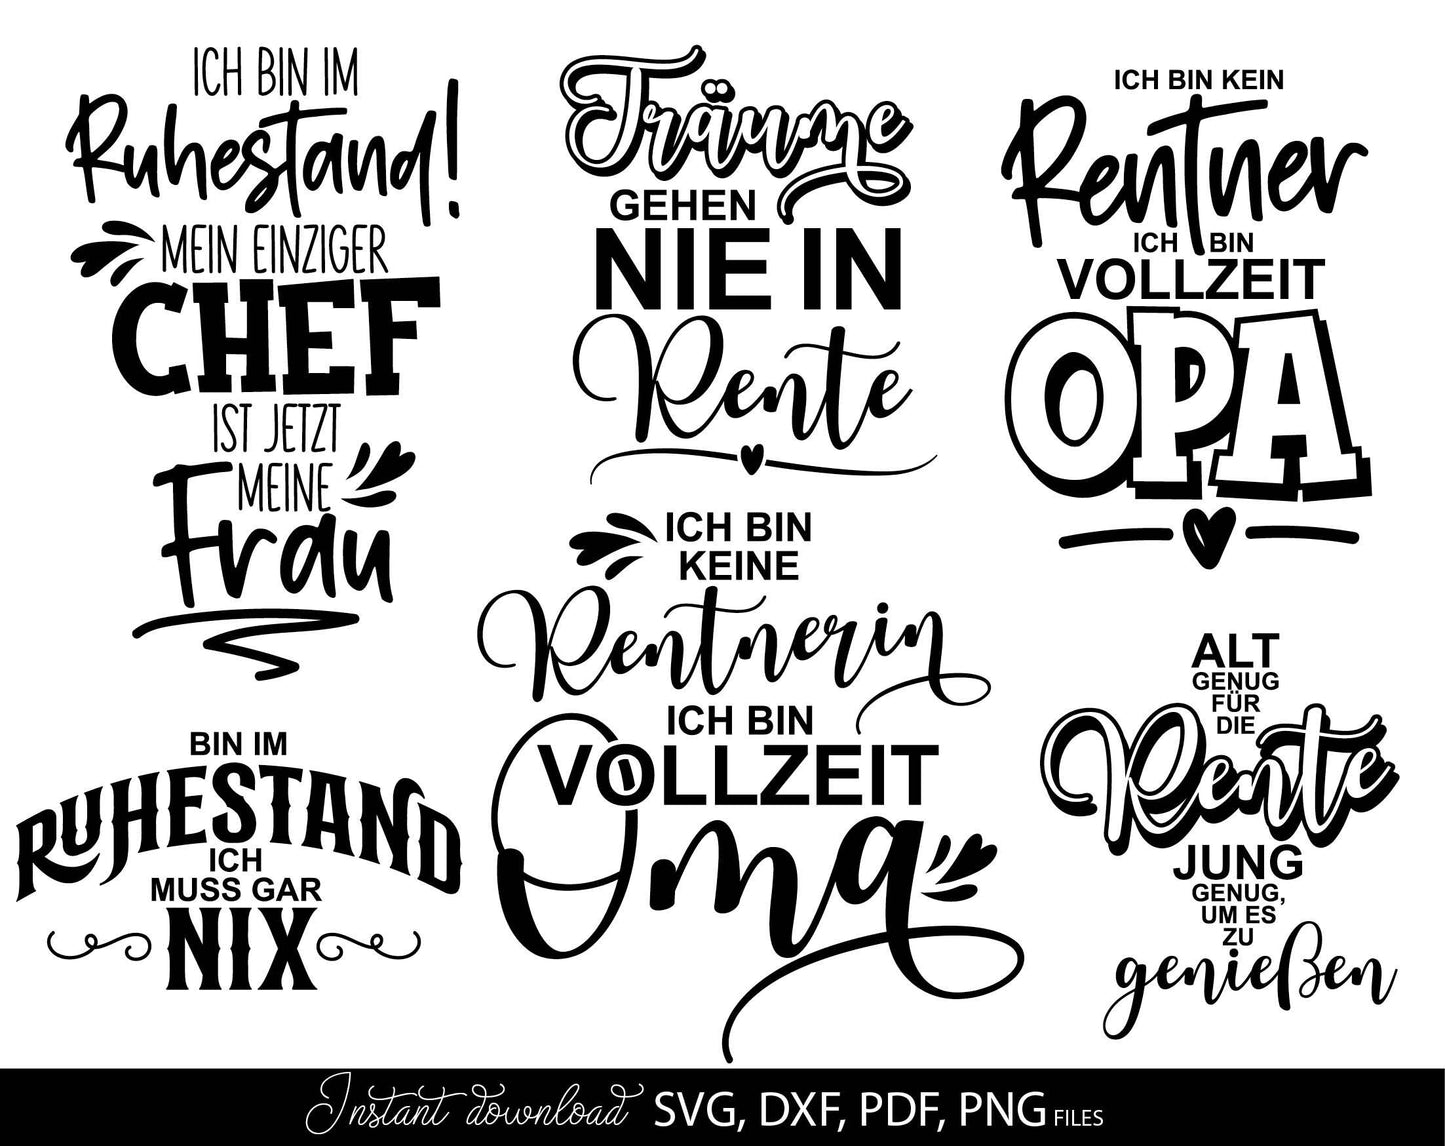 ICH BIN IM
Ruhestand!
MEIN EINZIGER
CHEF
IST JETZT
MEINE
Frau
Träume
GEHEN
NIE IN
Rente
ICH BIN KEIN
Rentner
ICH BIN
VOLLZEIT
OPA
BIN IM
RUHESTAND
ICH
MUSS GAR
NIX
ICH BIN
KEINE
Rentnerin
ICH BIN
VOLLZEIT
Oma
ALT
GENUG
FÜR
DIE
Rente
JUNG
GENUG,
UM ES
ZU
genießen
Instant download SVG, DXF, PDF, PNG FILES